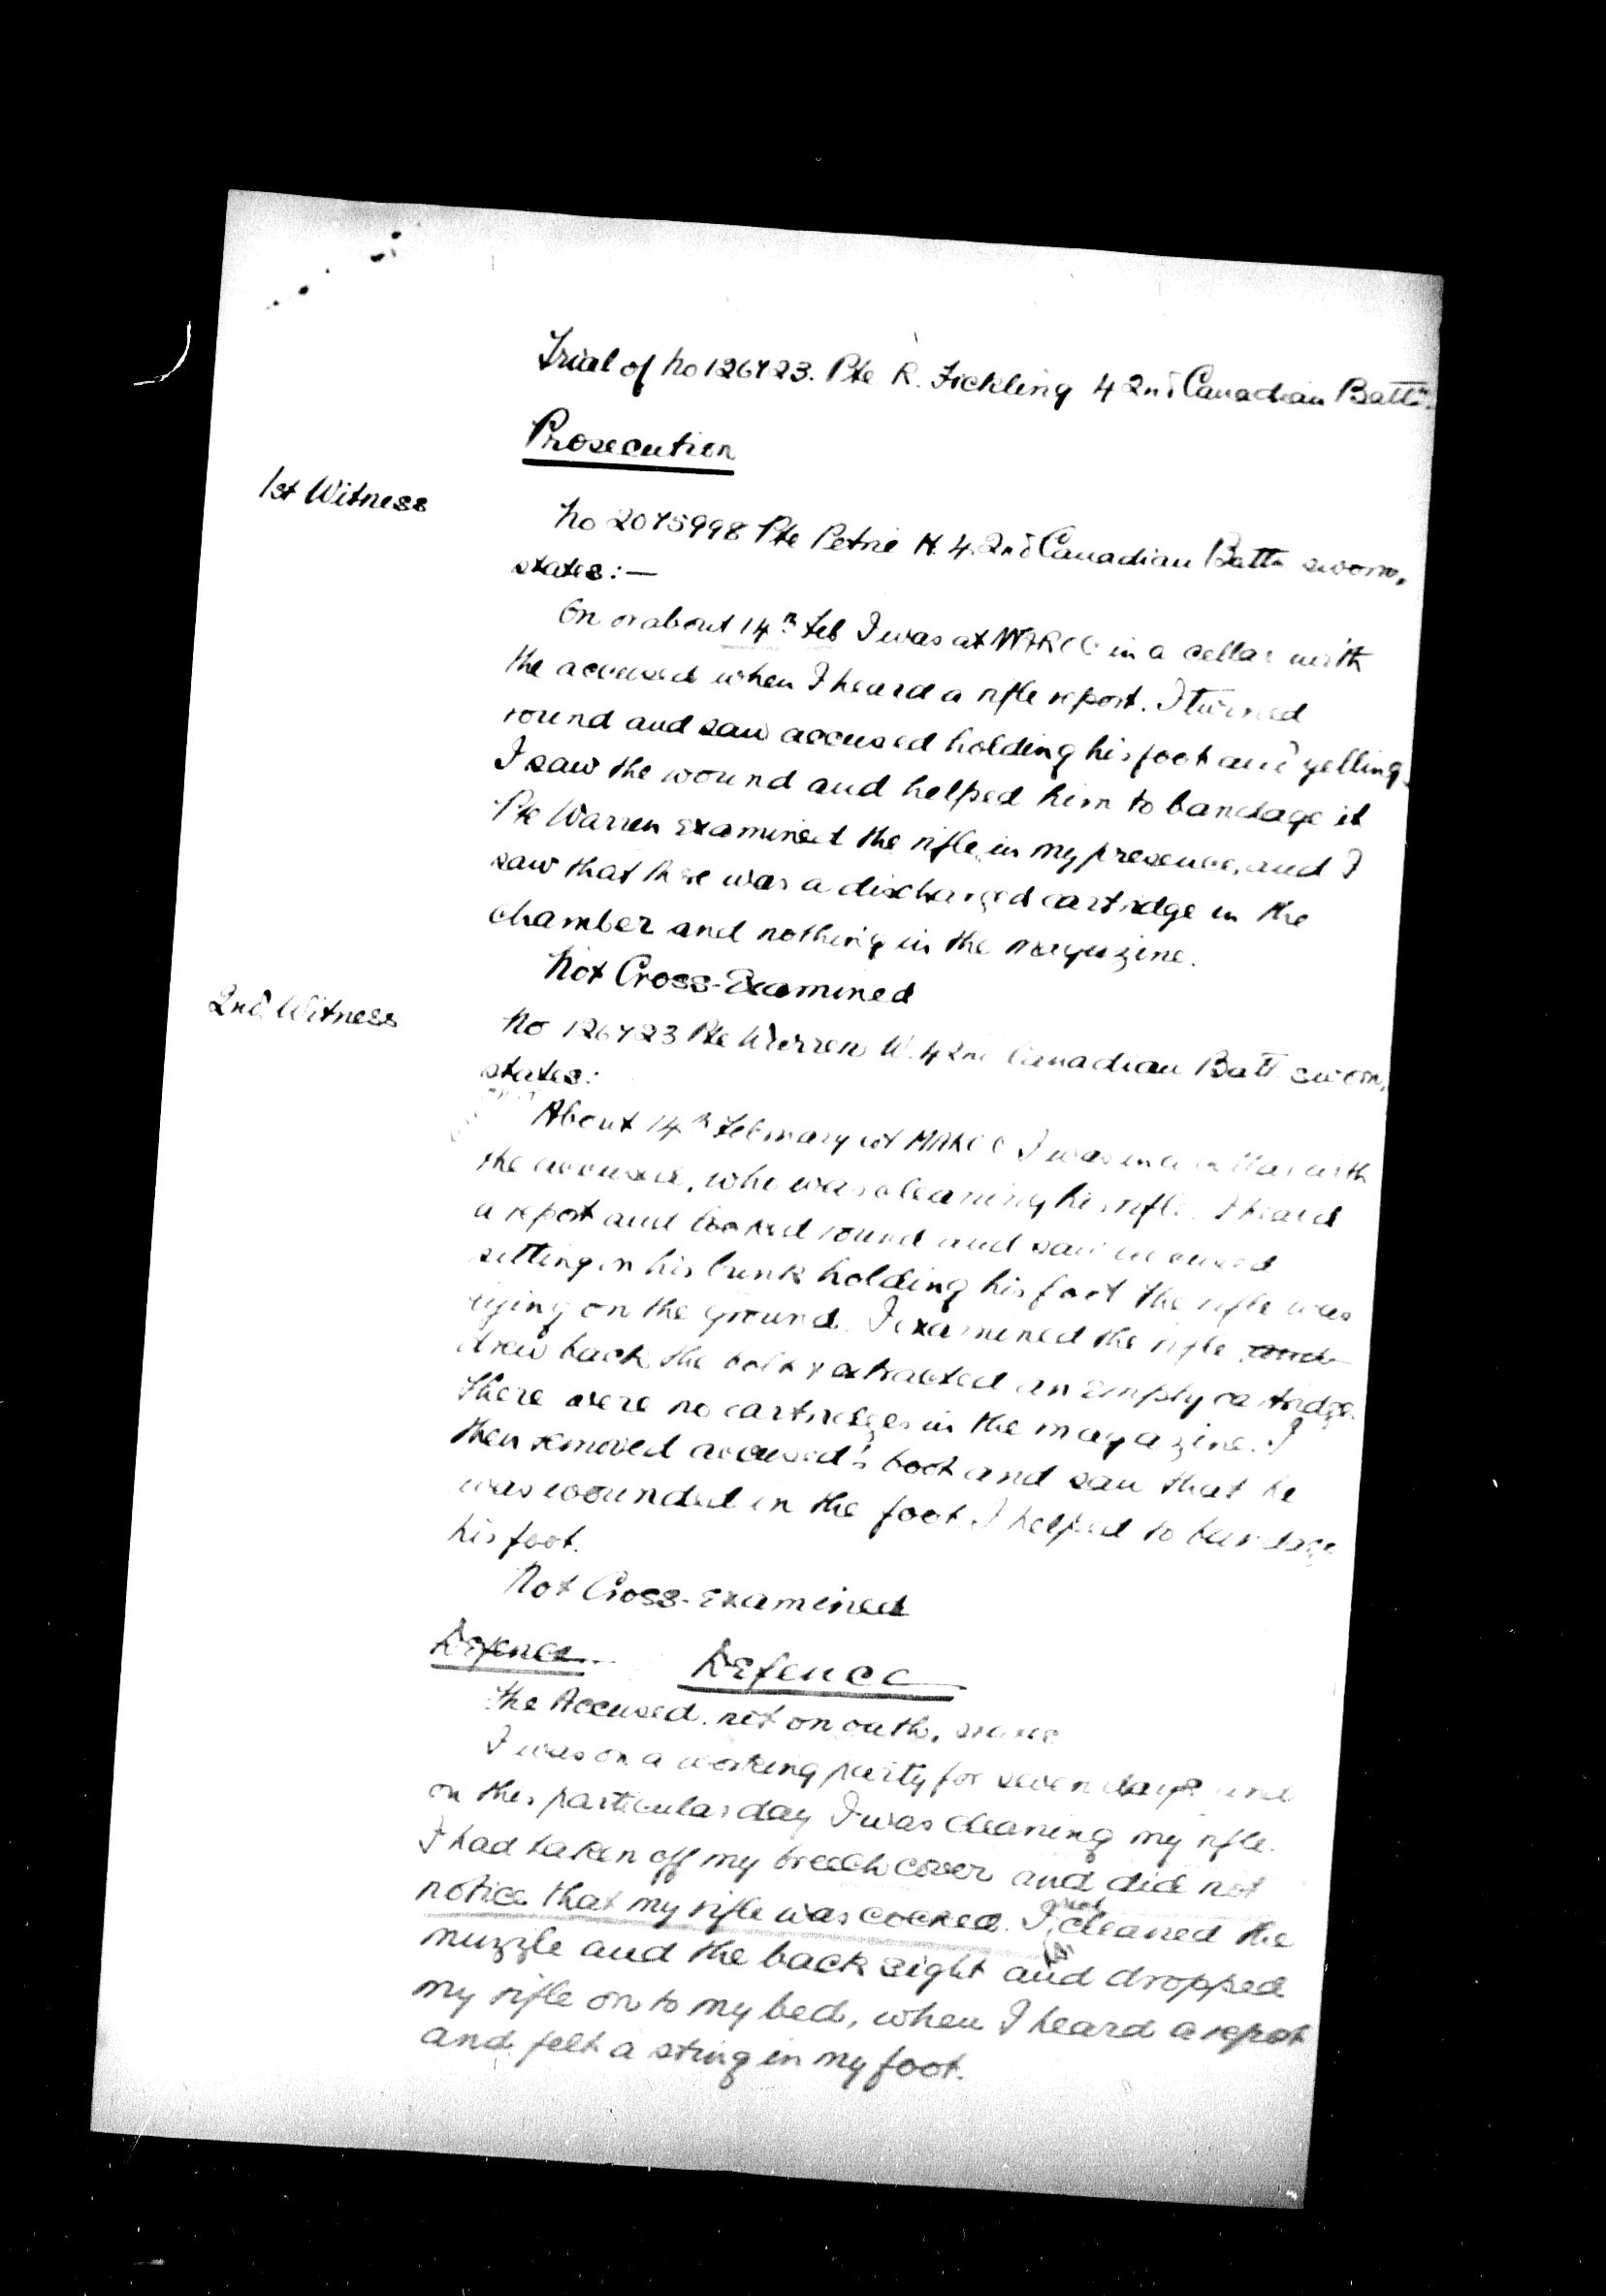 Trial of No 126423. Pte R. Fickling 42nd Canadian Battn.
Prosecution
1st Witness
No 2075998 Pte Petrie H. 42nd Canadian Battn sworn,
states:—
On or about 14th Feb I was at in a cellar with
the accused when I heard a rifle report. I turned
round and saw accused holding his foot and yelling.
I saw the wound and helped him to bandage it
Pte Warren examined the rifle in my presence, and I
saw that there was a discharged cartridge in the
chamber and nothing in the magazine.
Not Cross-Examined
2nd Witness
No 126423 Pte Warren W. 42nd Canadian Batt sworn,
states:
About 14th February at I was in a cellar with
the accused, who was cleaning his rifle. I heard
a report and looked round and saw accused
sitting on his bunk holding his foot the rifle was
lying on the ground. I examined the rifle and
drew back the bolt & extracted an empty cartridge.
There were no cartridges in the magazine. I
then removed accused's boot and saw that he
was wounded in the foot. I helped to bandage
his foot.
Not Cross-Examined
Defence Defence
The Accused, not on oath, states
I was on a working party for seven days and
on this particular day I was cleaning my rifle.
I had taken off my breech cover and did not
notice that my rifle was cocked. I cleaned the
muzzle and the back sight and dropped
my rifle on to my bed, when I heard a report
and felt a sting in my foot.